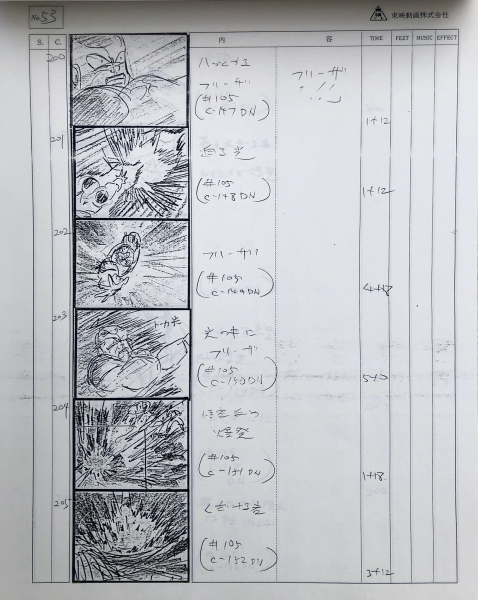 No. 53
東映動画株式会社
S. C. 内 容 TIME FEET MUSIC EFFECT
200
フリーザ
(#105
C-147DN)
フリーザ
!!
1+12
201
(#105
C-148DN)
1+12
202
フリーザ
(#105
C-149DN)
4+18
203
光の中に
フリーザ
(#105
C-150DN)
5+0
204
爆発
(#105
C-151DN)
1+18
205
(#105
C-152DN)
3+12